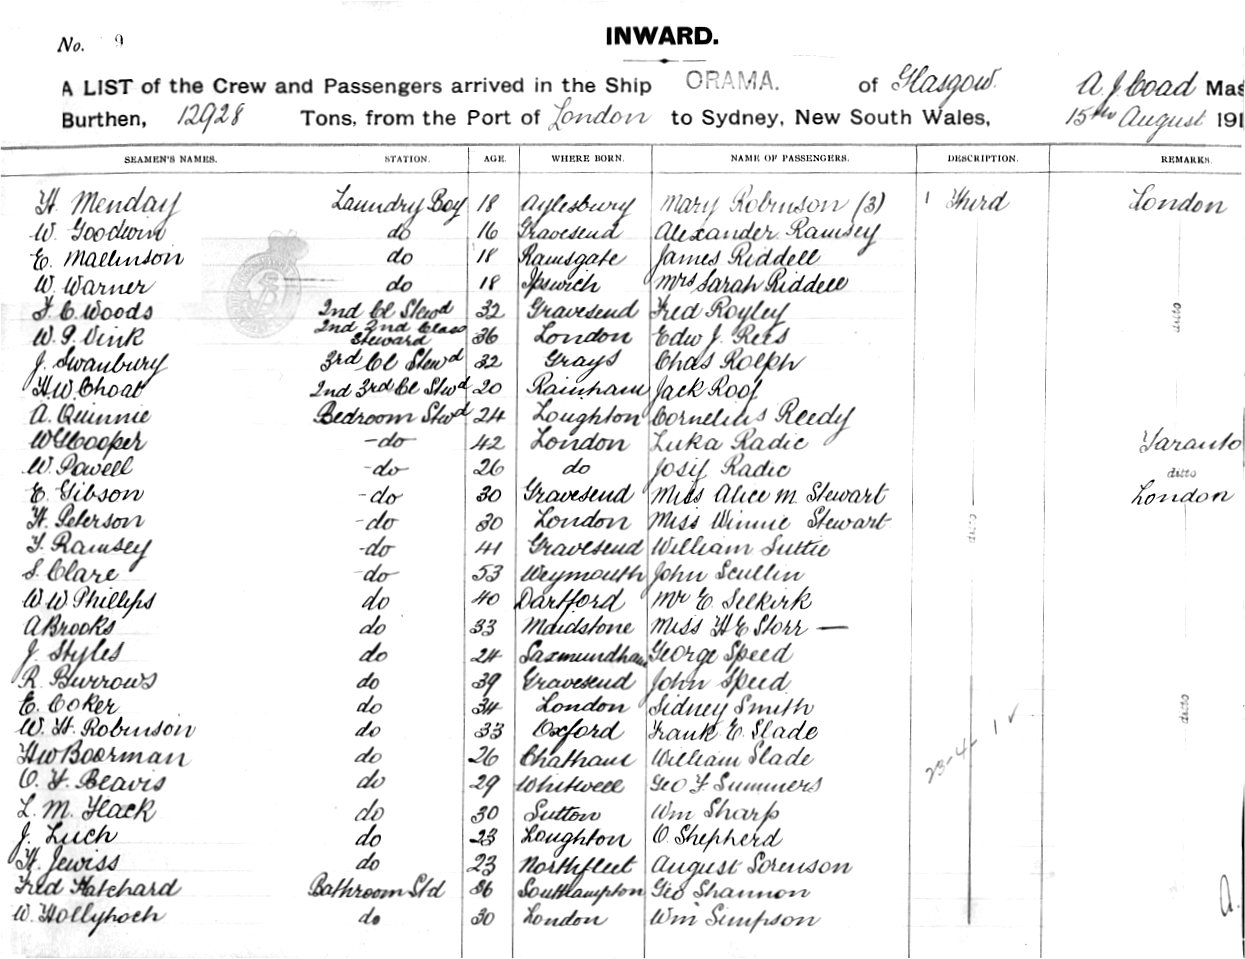 No. 9
INWARD.
A LIST of the Crew and Passengers arrived in the Ship ORAMA. of Glasgow. A. J. Coad Mas
Burthen, 12928 Tons, from the Port of London to Sydney, New South Wales, 15th August 191
SEAMEN'S NAMES. STATION. AGE. WHERE BORN. NAME OF PASSENGERS. DESCRIPTION. REMARKS.
H. Menday Laundry Boy 18 Aylesbury Mary Robinson (3) 1 Third London
W. Goodwin do 16 Gravesend Alexander Ramsey
E. Mallinson do 18 Ramsgate James Riddell
W. Warner do 18 Ipswich Mrs Sarah Riddell
F. C. Woods 2nd Cl Stewd 32 Gravesend Fred Royley ditto
W. P. Vink 2nd 2nd Class Steward 36 London Edw J. Rees
J. Swanbury 3rd Cl Stewd 32 Grays Chas Rolph
H. W. Choat 2nd 3rd Cl Stwd 20 Rainham Jack Roof
A. Quinnie Bedroom Stwd 24 Loughton Cornelius Reedy
W Cooper -do- 42 London Luka Radic Taranto
W. Powell -do- 26 do Josif Radic ditto
E. Gibson -do- 30 Gravesend Miss Alice M. Stewart London
H. Peterson -do 30 London Miss Winnie Stewart ditto
T. Ramsey -do 41 Gravesend William Suttie
S. Clare -do- 53 Weymouth John Scullin
W W Phillips do 40 Dartford Mr E. Selkirk
A Brooks do 33 Maidstone Miss H E Storr —
J. Styles do 24 Saxmundham George Speed
R. Burrows do 39 Gravesend John Speed
E. Coker do 34 London Sidney Smith ditto
W. H. Robinson do 33 Oxford Frank E. Slade 1 ✓
H W Boorman do 26 Chatham William Slade 23-4-
O. F. Beavis do 29 Whitwell Geo F Summers
L. M. Flack do 30 Sutton Wm Sharp
J. Luch do 23 Loughton O. Shepherd
H. Jewiss do 23 Northfleet August Sorenson
Fred Hatchard Bathroom Std 36 Southampton Geo Shannon A.
W. Hollyhoch do 30 London Wm Simpson